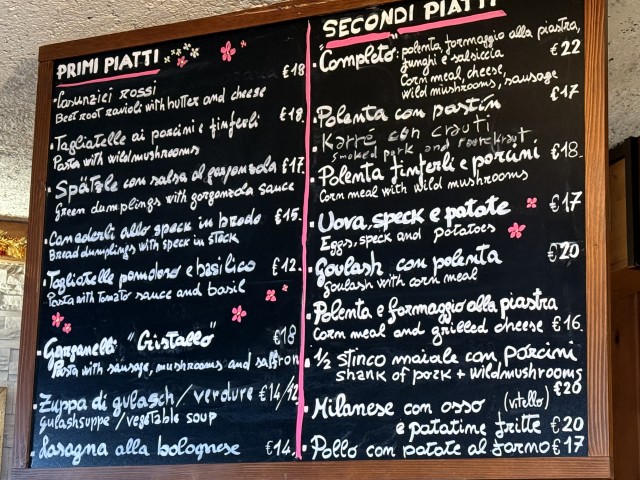 PRIMI PIATTI
Casunziei rossi €18
Beet root ravioli with butter and cheese
Tagliatelle ai porcini e finferli €18
Pasta with wild mushrooms
Spätzle con salsa al gorgonzola €17
Green dumplings with gorgonzola sauce
Canederli allo speck in brodo €15.
Bread dumplings with speck in stock
Tagliatelle pomodoro e basilico €12.
Pasta with tomato sauce and basil
Garganelli "Cristallo" €18
Pasta with sausage, mushrooms and saffron
Zuppa di gulasch/verdure €14/12
Gulashsuppe/vegetable soup
Lasagna alla bolognese €14.
SECONDI PIATTI
Completo: polenta, formaggio alla piastra,
funghi e salsiccia €22
Corn meal, cheese,
wild mushrooms, sausage
Polenta con pastin €17
Karrè con crauti
smoked pork and
Polenta finferli e porcini €18
Corn meal with wild mushrooms
Uova, speck e patate €17
Eggs, speck and potatoes
Goulash con polenta €20
Goulash with corn meal
Polenta e formaggio alla piastra
Corn meal and grilled cheese €16.
1/2 stinco maiale con porcini
shank of pork + wild mushrooms
€20
Milanese con osso (vitello)
e patatine fritte €20
Pollo con patate al forno €17